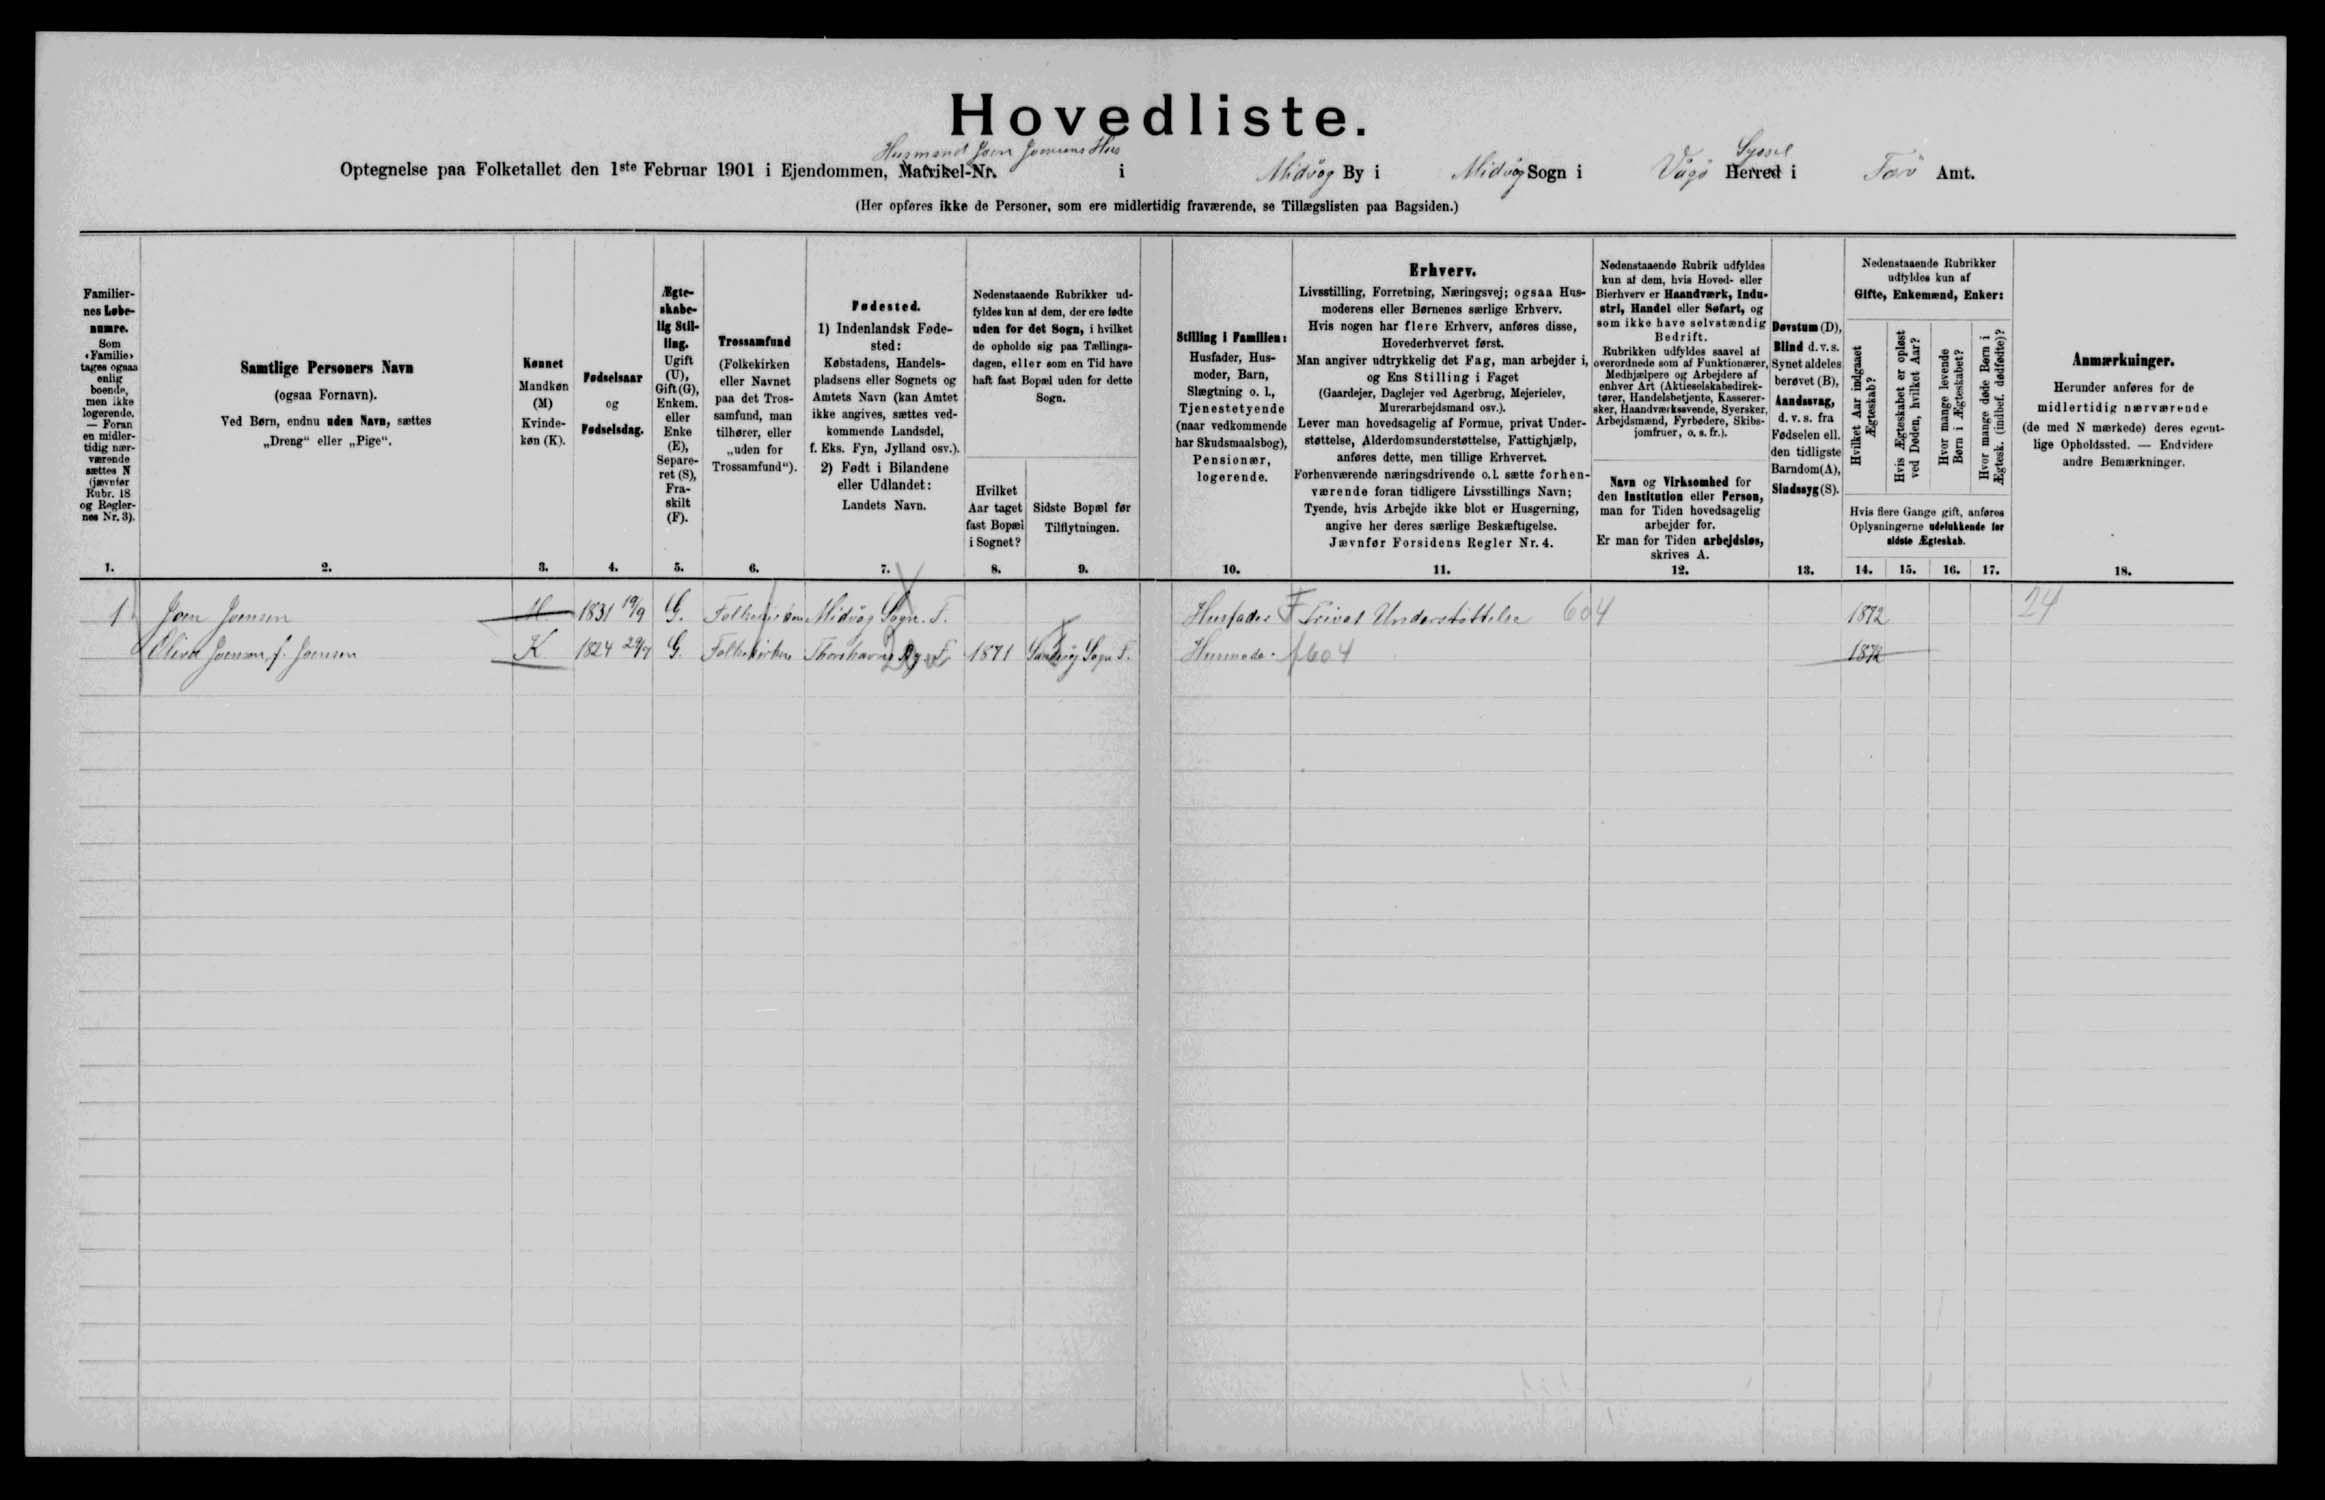 Hovedliste.
Husmand Joen Joensens Hus
Syssel
Optegnelse paa Folketallet den 1ste Februar 1901 i Ejendommen, Matrikel-Nr. i Midvåg By i Midvåg Sogn i Vågø Herred i Færø Amt.
(Her opføres ikke de Personer, som ere midlertidig fraværende, se Tillægslisten paa Bagsiden.)
Familier-
nes Løbe-
numre.
Som
‹Familie›
tages ogsaa
enlig
boende,
men ikke
logerende.
— Foran
en midler-
tidig nær-
værende
sættes N
(jævnfør
Rubr. 18
og Regler-
nes Nr. 3).
1.
Samtlige Personers Navn
(ogsaa Fornavn).
Ved Børn, endnu uden Navn, sættes
„Dreng“ eller „Pige“.
2.
Kønnet
Mandkøn
(M)
Kvinde-
køn (K).
3.
Fødselsaar
og
Fødselsdag.
4.
Ægte-
skabe-
lig Stil-
ling.
Ugift
(U),
Gift (G),
Enkem.
eller
Enke
(E),
Separe-
ret (S),
Fra-
skilt
(F).
5.
Trossamfund
(Folkekirken
eller Navnet
paa det Tros-
samfund, man
tilhører, eller
„uden for
Trossamfund“).
6.
Fødested.
1) Indenlandsk Føde-
sted:
Købstadens, Handels-
pladsens eller Sognets og
Amtets Navn (kan Amtet
ikke angives, sættes ved-
kommende Landsdel,
f. Eks. Fyn, Jylland osv.).
2) Født i Bilandene
eller Udlandet:
Landets Navn.
7.
Nedenstaaende Rubrikker ud-
fyldes kun af dem, der ere fødte
uden for det Sogn, i hvilket
de opholde sig paa Tællings-
dagen, eller som en Tid have
haft fast Bopæl uden for dette
Sogn.
Hvilket
Aar taget
fast Bopæl
i Sognet?
8.
Sidste Bopæl før
Tilflytningen.
9.
Stilling i Familien:
Husfader, Hus-
moder, Barn,
Slægtning o. l.,
Tjenestetyende
(naar vedkommende
har Skudsmaalsbog),
Pensionær,
logerende.
10.
Erhverv.
Livsstilling, Forretning, Næringsvej; ogsaa Hus-
moderens eller Børnenes særlige Erhverv.
Hvis nogen har flere Erhverv, anføres disse,
Hovederhvervet først.
Man angiver udtrykkelig det Fag, man arbejder i,
og Ens Stilling i Faget
(Gaardejer, Daglejer ved Agerbrug, Mejerielev,
Murerarbejdsmand osv.).
Lever man hovedsagelig af Formue, privat Under-
støttelse, Alderdomsunderstøttelse, Fattighjælp,
anføres dette, men tillige Erhvervet.
Forhenværende næringsdrivende o.l. sætte forhen-
værende foran tidligere Livsstillings Navn;
Tyende, hvis Arbejde ikke blot er Husgerning,
angive her deres særlige Beskæftigelse.
Jævnfør Forsidens Regler Nr. 4.
11.
Nedenstaaende Rubrik udfyldes
kun af dem, hvis Hoved- eller
Bierhverv er Haandværk, Indu-
stri, Handel eller Søfart, og
som ikke have selvstændig
Bedrift.
Rubrikken udfyldes saavel af
overordnede som af Funktionærer,
Medhjælpere og Arbejdere af
enhver Art (Aktieselskabsdirek-
tører, Handelsbetjente, Kasserer-
sker, Haandværkssvende, Syersker,
Arbejdsmænd, Fyrbødere, Skibs-
jomfruer, o. s. fr.).
Navn og Virksomhed for
den Institution eller Person,
man for Tiden hovedsagelig
arbejder for.
Er man for Tiden arbejdsløs,
skrives A.
12.
Døvstum (D),
Blind d. v. s.
Synet aldeles
berøvet (B),
Aandssvag,
d. v. s. fra
Fødselen ell.
den tidligste
Barndom (A),
Sindssyg (S).
13.
Nedenstaaende Rubrikker
udfyldes kun af
Gifte, Enkemænd, Enker:
Hvilket Aar indgaaet
Ægteskab?
Hvis Ægteskabet er opløst
ved Døden, hvilket Aar?
Hvor mange levende
Børn i Ægteskabet?
Hvor mange døde Børn i
Ægtesk. (indbef. dødfødte)?
Hvis flere Gange gift, anføres
Oplysningerne udelukkende for
sidste Ægteskab.
14. 15. 16. 17.
Anmærkninger.
Herunder anføres for de
midlertidig nærværende
(de med N mærkede) deres egent-
lige Opholdssted. — Endvidere
andre Bemærkninger.
18.
1 Joen Joensen M. 1831 19/9 G. Folkekirken Midvåg Sogn. F. Husfader F Privat Understøttelse 604 1872 24
Joensen f. Joensen K 1824 29/7 G. Folkekirken Thorshavns F. 1871 Sandevåg Sogn F. Husmoder 604 1872